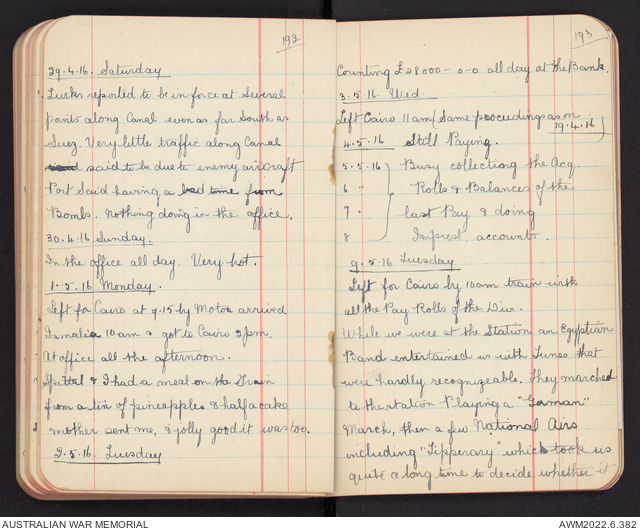 192
29.4.16. Saturday
Turks reported to be in force at Several
points along Canal even as far South as
Suez. Very little traffic along Canal
said to be due to enemy aircraft
Port Said having a bad time from
Bombs. Nothing doing in the office.
30.4.16 Sunday.
In the office all day. Very hot.
1.5.16 Monday.
Left for Cairo at 9.15 by Motor arrived
Ismalia 10am & got to Cairo 2pm.
At office all the afternoon.
Spittal & I had a meal on the Train
from a tin of pineapples & half a cake
mother sent me, & jolly good it was too.
2.5.16 Tuesday
193
Counting £28000-0-0 all day at the Bank.
3.5.16 Wed.
Left Cairo 11am (Same proceedings as on
29.4.16)
4.5.16 Still Paying.
5.5.16 Busy collecting the Acq.
6 " Rolls & Balances of the
7 " last Pay & doing
8 Imprest accounts.
9.5.16 Tuesday
Left for Cairo by 10am train with
all the Pay Rolls of the Divr.
While we were at the Station an Egyptian
Band entertained us with Tunes that
were hardly recognizeable. They marched
to the station Playing a "German"
March, then a few National Airs
including "Tipperary" which took us
quite a long time to decide whether it
AUSTRALIAN WAR MEMORIAL
AWM2022.6.382